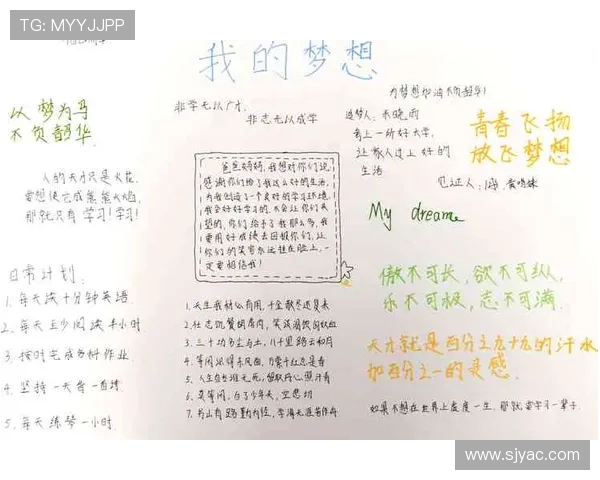 TG: MYYJJPP
我的梦想
以梦为马
不负韶华
人的天才只是火花,
要想使它成熊熊火焰,
那就只有学习!学习!
日常计划
1. 每天读十分钟英语.
2. 每天至少阅读半小时
3. 按时完成各科作业
4. 坚持一天背一首诗
5. 每天练琴一小时.
非学无以广才,
非志无以成学
爸爸妈妈,我想对你们说,
感谢你们给了我这么好的生活,
为我创造了一个良好的学习环境,
我会好好学习的,不会让你们失
望的,你们给予了我那么多,我
要用好成绩去回报你们,让
你们的笑容永远挂在脸上,一
定要相信我!
1、天生我材必有用,千金散尽还复来
2、壮志饥餐胡虏肉,笑谈渴饮匈奴血
3、三十功名尘与土,八千里路云和月
4、等闲识得东风面,万紫千红总是春
5、人生自古谁无死,留取丹心照汗青
6、莫等闲,白了少年头,空悲切
7、书山有路勤为径,学海无涯苦作舟
为梦想加油不负韶华!
追梦人:
考上一所好大学,
让家人过上好的
生活
见证人:
青春飞扬
放飞梦想
My dream
傲不可长,欲不可纵,
乐不可极,志不可满.
天才就是百分之九十九的汗水
加百分之一的灵感.
如果不想在世界上虚度一生,那就要学习一辈子.
www.sjyac.com